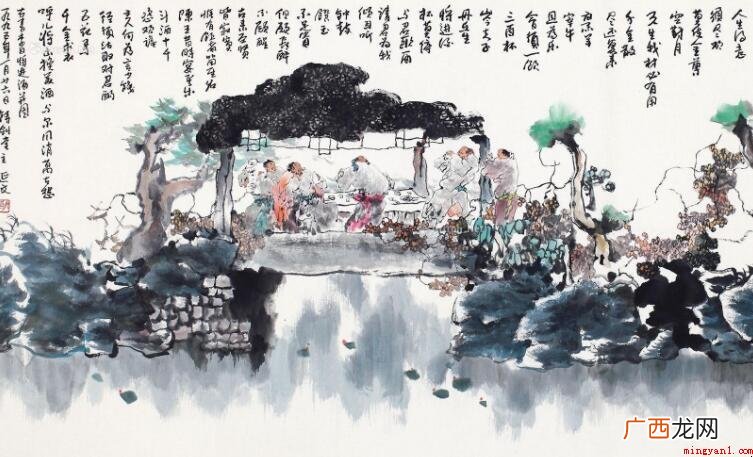 人生得意
须尽欢
莫使金尊
空对月
天生我材必有用
千金散
尽还复来
烹羊
宰牛
且为乐
会须一饮
三百杯
岑夫子
丹丘生
将进酒
杯莫停
与君歌一曲
请君为我
倾耳听
钟鼓
馔玉
不足贵
但愿长醉
不愿醒
古来圣贤
皆寂寞
惟有饮者留其名
陈王昔时宴平乐
斗酒十千
恣欢谑
主人何为言少钱
径须沽取对君酌
五花马
千金裘
呼儿将出换美酒与尔同消万古愁
李太白将进酒
一九九五年一月廿六日 堂主延文
广西龙网
mingyan1.com